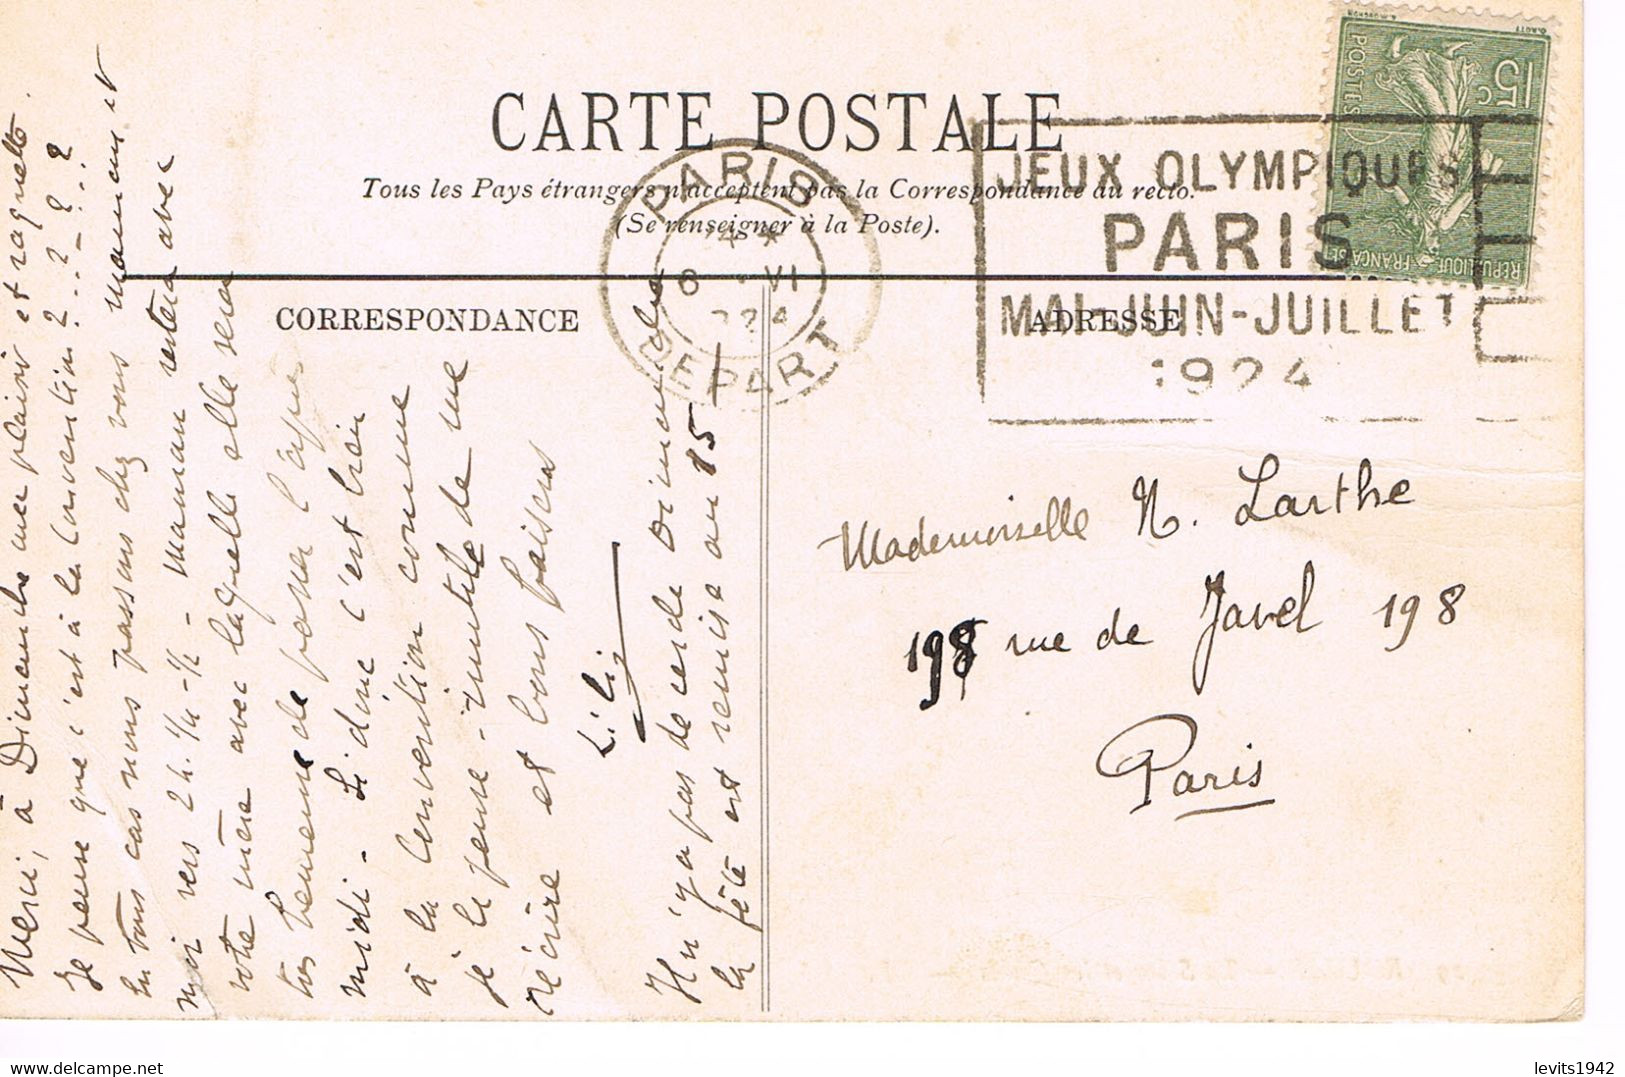 CARTE POSTALE
Tous les Pays étrangers n'acceptent pas la Correspondance au recto.
(Se renseigner à la Poste).
CORRESPONDANCE
ADRESSE
PARIS
DEPART
JEUX OLYMPIQUES
PARIS
MAI-JUIN-JUILLET
1924
15c
POSTES
REPUBLIQUE FRANCAISE
Merci, à Dimanche avec plaisir et raquette.
Je pense que c'est à la Convention?..?-?..?
En tous cas nous passons chez vous maman et
moi vers 2h. 1/4-1/2 - Maman restera avec
votre mère avec laquelle elle sera
très heureuse de passer l'après
midi - Si donc c'est bien
à la Convention comme
je le pense - inutile de me
récrire et bons baisers
Lili
Il n'y a pas de cercle Dimanche
la fête est remise au 15
Mademoiselle N. Larthe
198 rue de Javel 198
Paris
levits1942